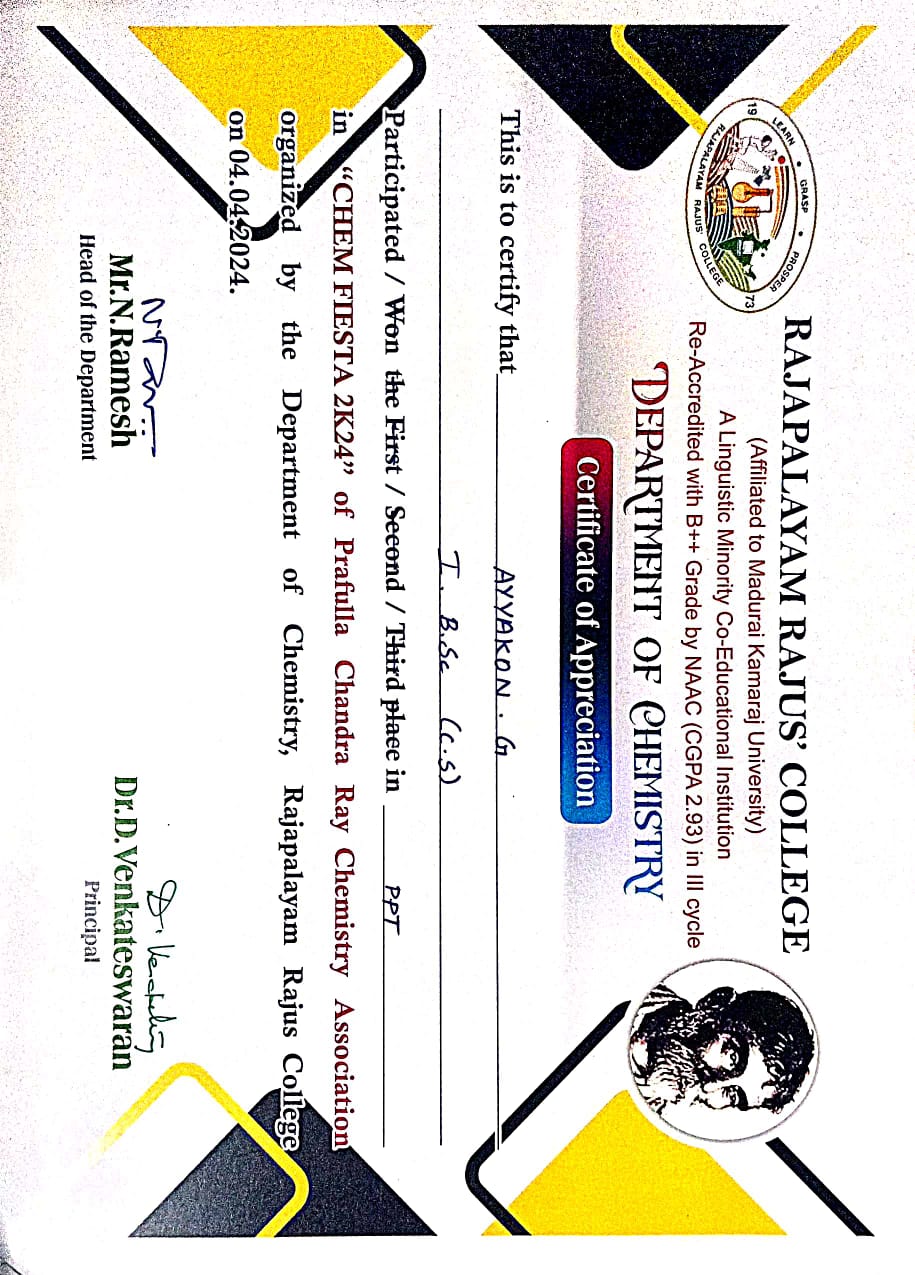 LEARN • GRASP • PROSPER
19 73
RAJAPALAYAM RAJUS' COLLEGE
RAJAPALAYAM RAJUS' COLLEGE
(Affiliated to Madurai Kamaraj University)
A Linguistic Minority Co-Educational Institution
Re-Accredited with B++ Grade by NAAC (CGPA 2.93) in III cycle
DEPARTMENT OF CHEMISTRY
Certificate of Appreciation
This is to certify that AYYAKON . G
I. B.Sc (C.S)
Participated / Won the First / Second / Third place in PPT
in "CHEM FIESTA 2K24" of Prafulla Chandra Ray Chemistry Association
organized by the Department of Chemistry, Rajapalayam Rajus College
on 04.04.2024.
Mr.N.Ramesh
Head of the Department
Dr.D.Venkateswaran
Principal